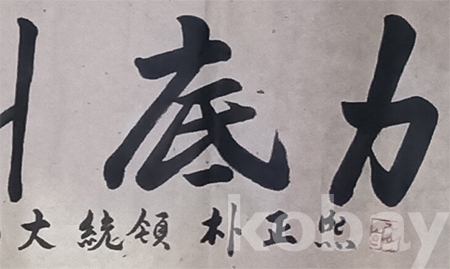 底力
大統領 朴正熙
kobay